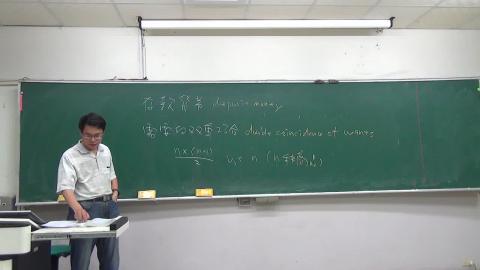 存款貨幣 deposit money
需要的双重巧合 double coincidence of wants
n×(n-1)/2 vs n (n